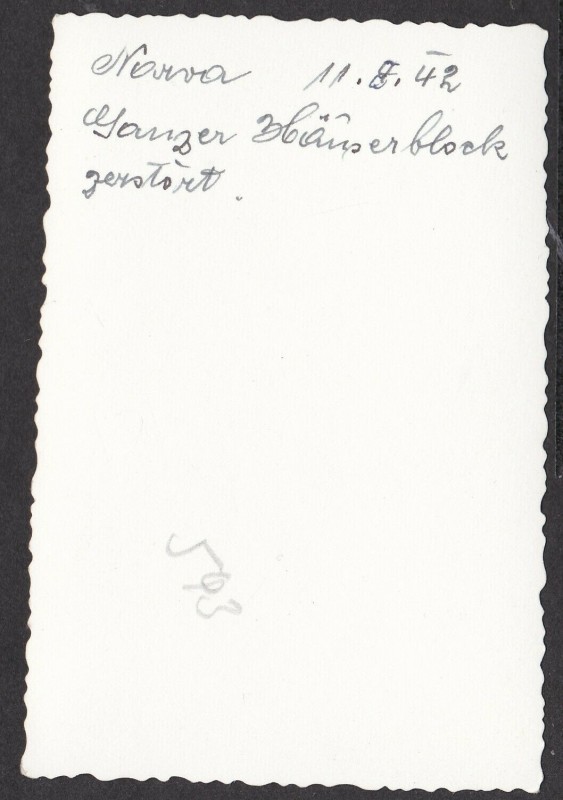 Narva 11. 8. 42
Ganzer Häuserblock
zerstört.
593